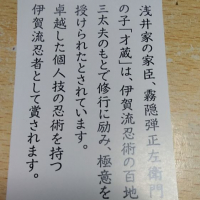 浅井家の家臣、霧隠弾正左衛門
の子「才蔵」は、伊賀流忍術の百地
三太夫のもとで修行に励み、極意を
授けられたとされています。
卓越した個人技の忍術を持つ
伊賀流忍者として賞されます。